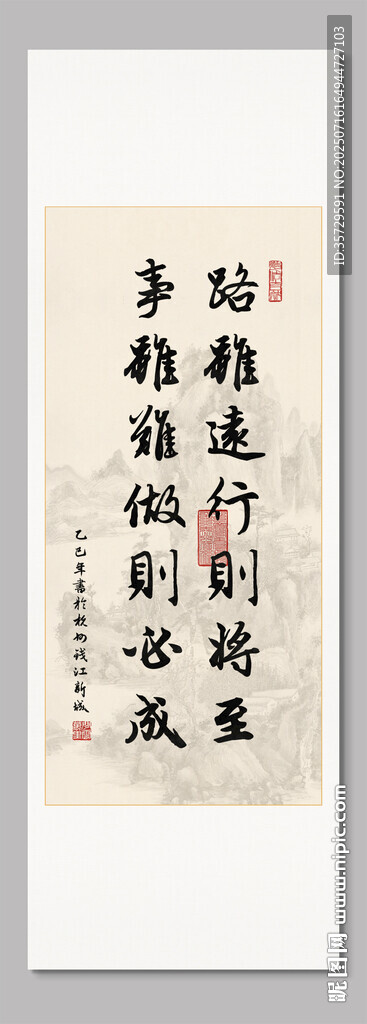 路雖遠行則將至
事雖難做則必成
乙巳年書於杭州钱江新城
ID:35729591 NO:20250716164944727103
昵图网 www.nipic.com